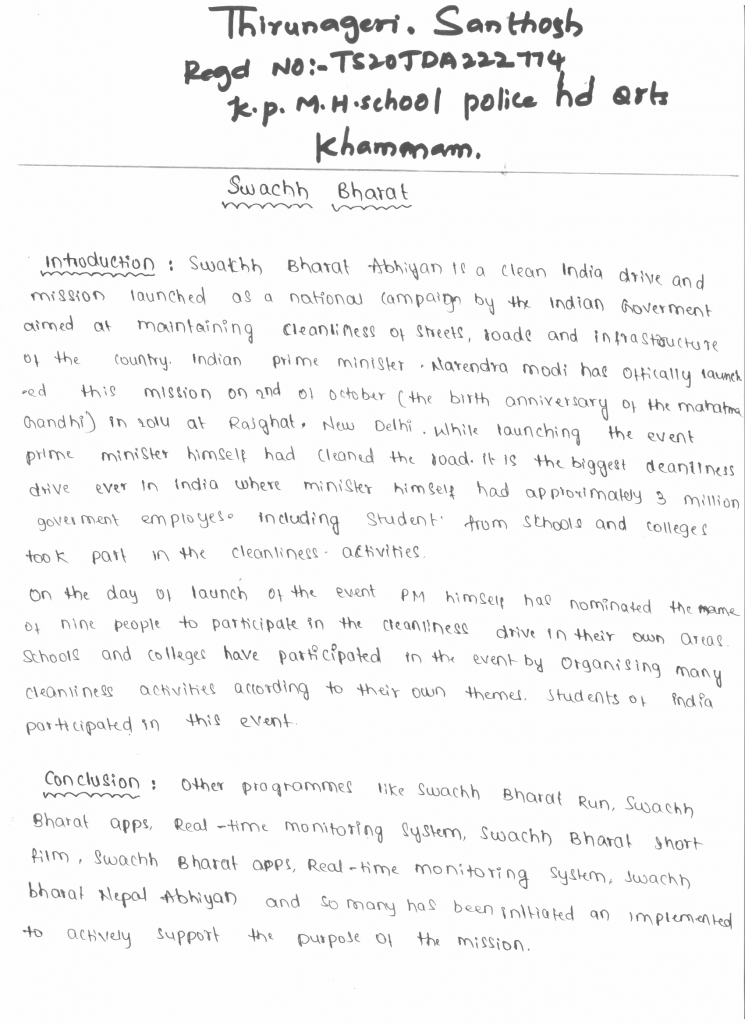 Thirunageri. Santhosh
Regd NO:- TS20JDA222774
K.P.M.H.school police hd Qrts
Khammam.
Swachh Bharat
Introduction : Swachh Bharat Abhiyan is a clean India drive and
mission launched as a national campaign by the Indian Goverment
aimed at maintaining cleanliness of streets, roads and infrastructure
of the country. Indian prime minister . Narendra modi has offically launch
-ed this mission on 2nd of october (the birth anniversary of the mahatma
Gandhi) in 2014 at Rajghat, New Delhi. While launching the event
prime minister himself had cleaned the road. it is the biggest cleanliness
drive ever in India where minister himself had approximately 3 million
goverment employes. including student from schools and colleges
took part in the cleanliness activities.
On the day of launch of the event PM himself has nominated the name
of nine people to participate in the cleanliness drive in their own areas.
Schools and colleges have participated in the event by organising many
cleanliness activities according to their own themes. students of india
participated in this event.
Conclusion : Other programmes like Swachh Bharat Run, Swachh
Bharat apps, Real-time monitoring System, Swachh Bharat short
film, Swachh Bharat apps, Real-time monitoring system, swachh
bharat Nepal Abhiyan and so many has been initiated an implemented
to actively support the purpose of the mission.